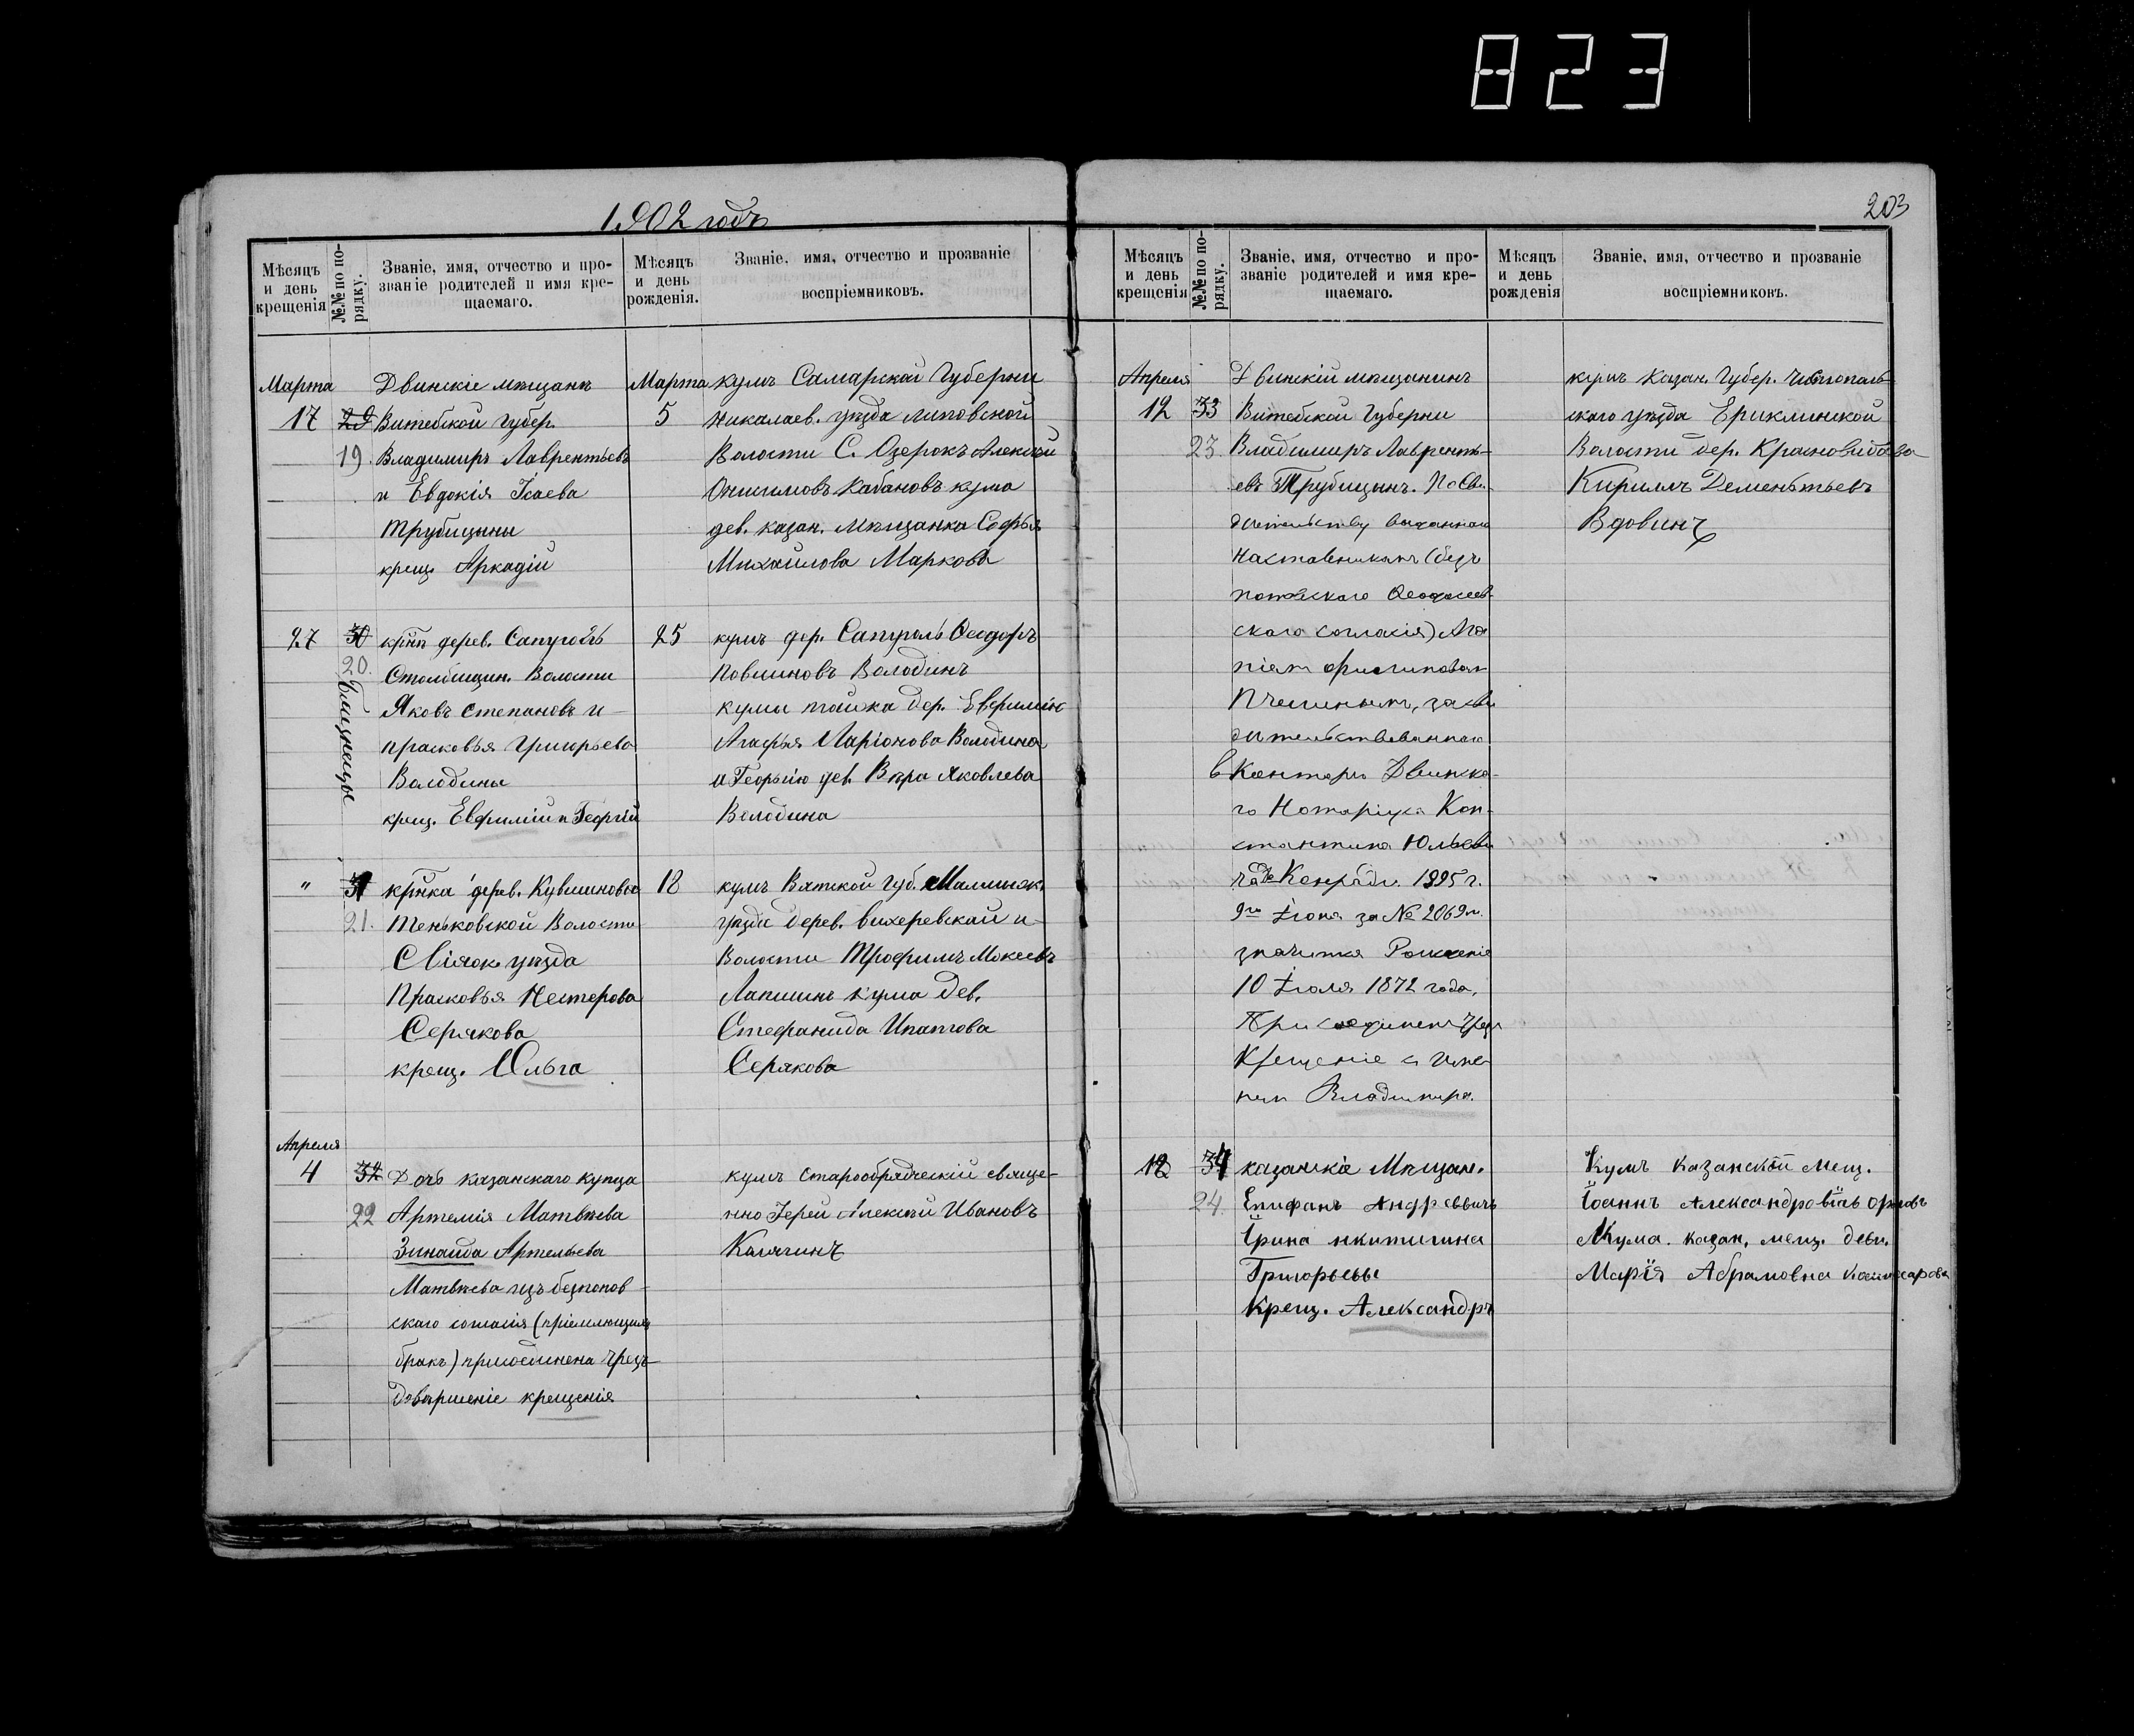 823
203
1902 годъ
Мѣсяцъ и день крещенія
№№ по порядку.
Званіе, имя, отчество и прозваніе родителей и имя крещаемаго.
Мѣсяцъ и день рожденія.
Званіе, имя, отчество и прозваніе воспріемниковъ.
Марта
17
29
19.
Двинскіе мѣщанѣ
Витебской Губер.
Владимиръ Лаврентьевъ
и Евдокія Ісаева
Трубицыны
крещ. Аркадій
Марта
5
кумъ Самарской Губерніи
Николаев. уѣзда липовской
Волости С. Озерокъ Алексѣй
Онисимовъ Кабановъ кума
дев. казан. мѣщанка Софья
Михайлова Маркова
27
30
20.
близнецы
дерев.
Волости
Яковъ Степановъ и
прасковья Григорьева
Володины
крещ. Евфимій и Георгій
25
кумъ дер. Ѳеодоръ
Володинъ
кумы дер.
Агафья Ларіонова Володина
и Георгію дев. Вѣра Яковлева
Володина
"
31
21.
дерев. Кувшиновой
теньковской Волости
Свіяжск. уѣзда
Прасковья Нестерова
Серякова
крещ. Ольга
18
кумъ Вятской Губ.
уѣзда дерев. вихеревской и
Волости Трофимъ Мокеевъ
Лапшинъ кума дев.
Стефанида Ипатова
Серякова
Апреля
4
32
22
Дочь казанскаго купца
Артемія Матвѣева
Зинаида Артемьева
Матвѣева изъ безпопов-
скаго согласія (пріемлющихъ
бракъ) присоединена чрезъ
довершеніе крещенія
кумъ старообрядческій свяще-
нно Іерей Алексѣй Ивановъ
Калягинъ
Мѣсяцъ и день крещенія
№№ по порядку.
Званіе, имя, отчество и прозваніе родителей и имя крещаемаго.
Мѣсяцъ и день рожденія
Званіе, имя, отчество и прозваніе воспріемниковъ.
Апреля
12
33
23
Двинскій мѣщанинъ
Витебской Губерни
Владимиръ Лаврентъ-
евъ Трубицынъ. По Сви-
дительству выданнаго
наставникомъ (безъ
поповскаго Ѳеодосеев-
скаго согласія)
засви
дительствованнаго
в Конторѣ Двинска-
го Нотаріуса Кон-
стантина Юльеви
ча 1895 г.
9го Іюня за № 2069м.
значится Рожденіе
10 Іюля 1872 года.
Присоединенъ чрезъ
Крещеніе с име-
нем Владимира.
кумъ Казан. Губер. Чистополь-
скаго уѣзда Ериклинской
Волости дер. Красновидова
Кириллъ Деменьтьевъ
Вдовинъ
12
34
24.
казанскіе Мѣщан.
Епифанъ Андреевичъ
Ірина никитична
Григорьевы
Крещ. Александръ
Кумъ Казанскій мещ.
Іоаннъ Александровичъ Орловъ
Кума. казан. мещ. деви.
Марія Абрамовна Комиссарова